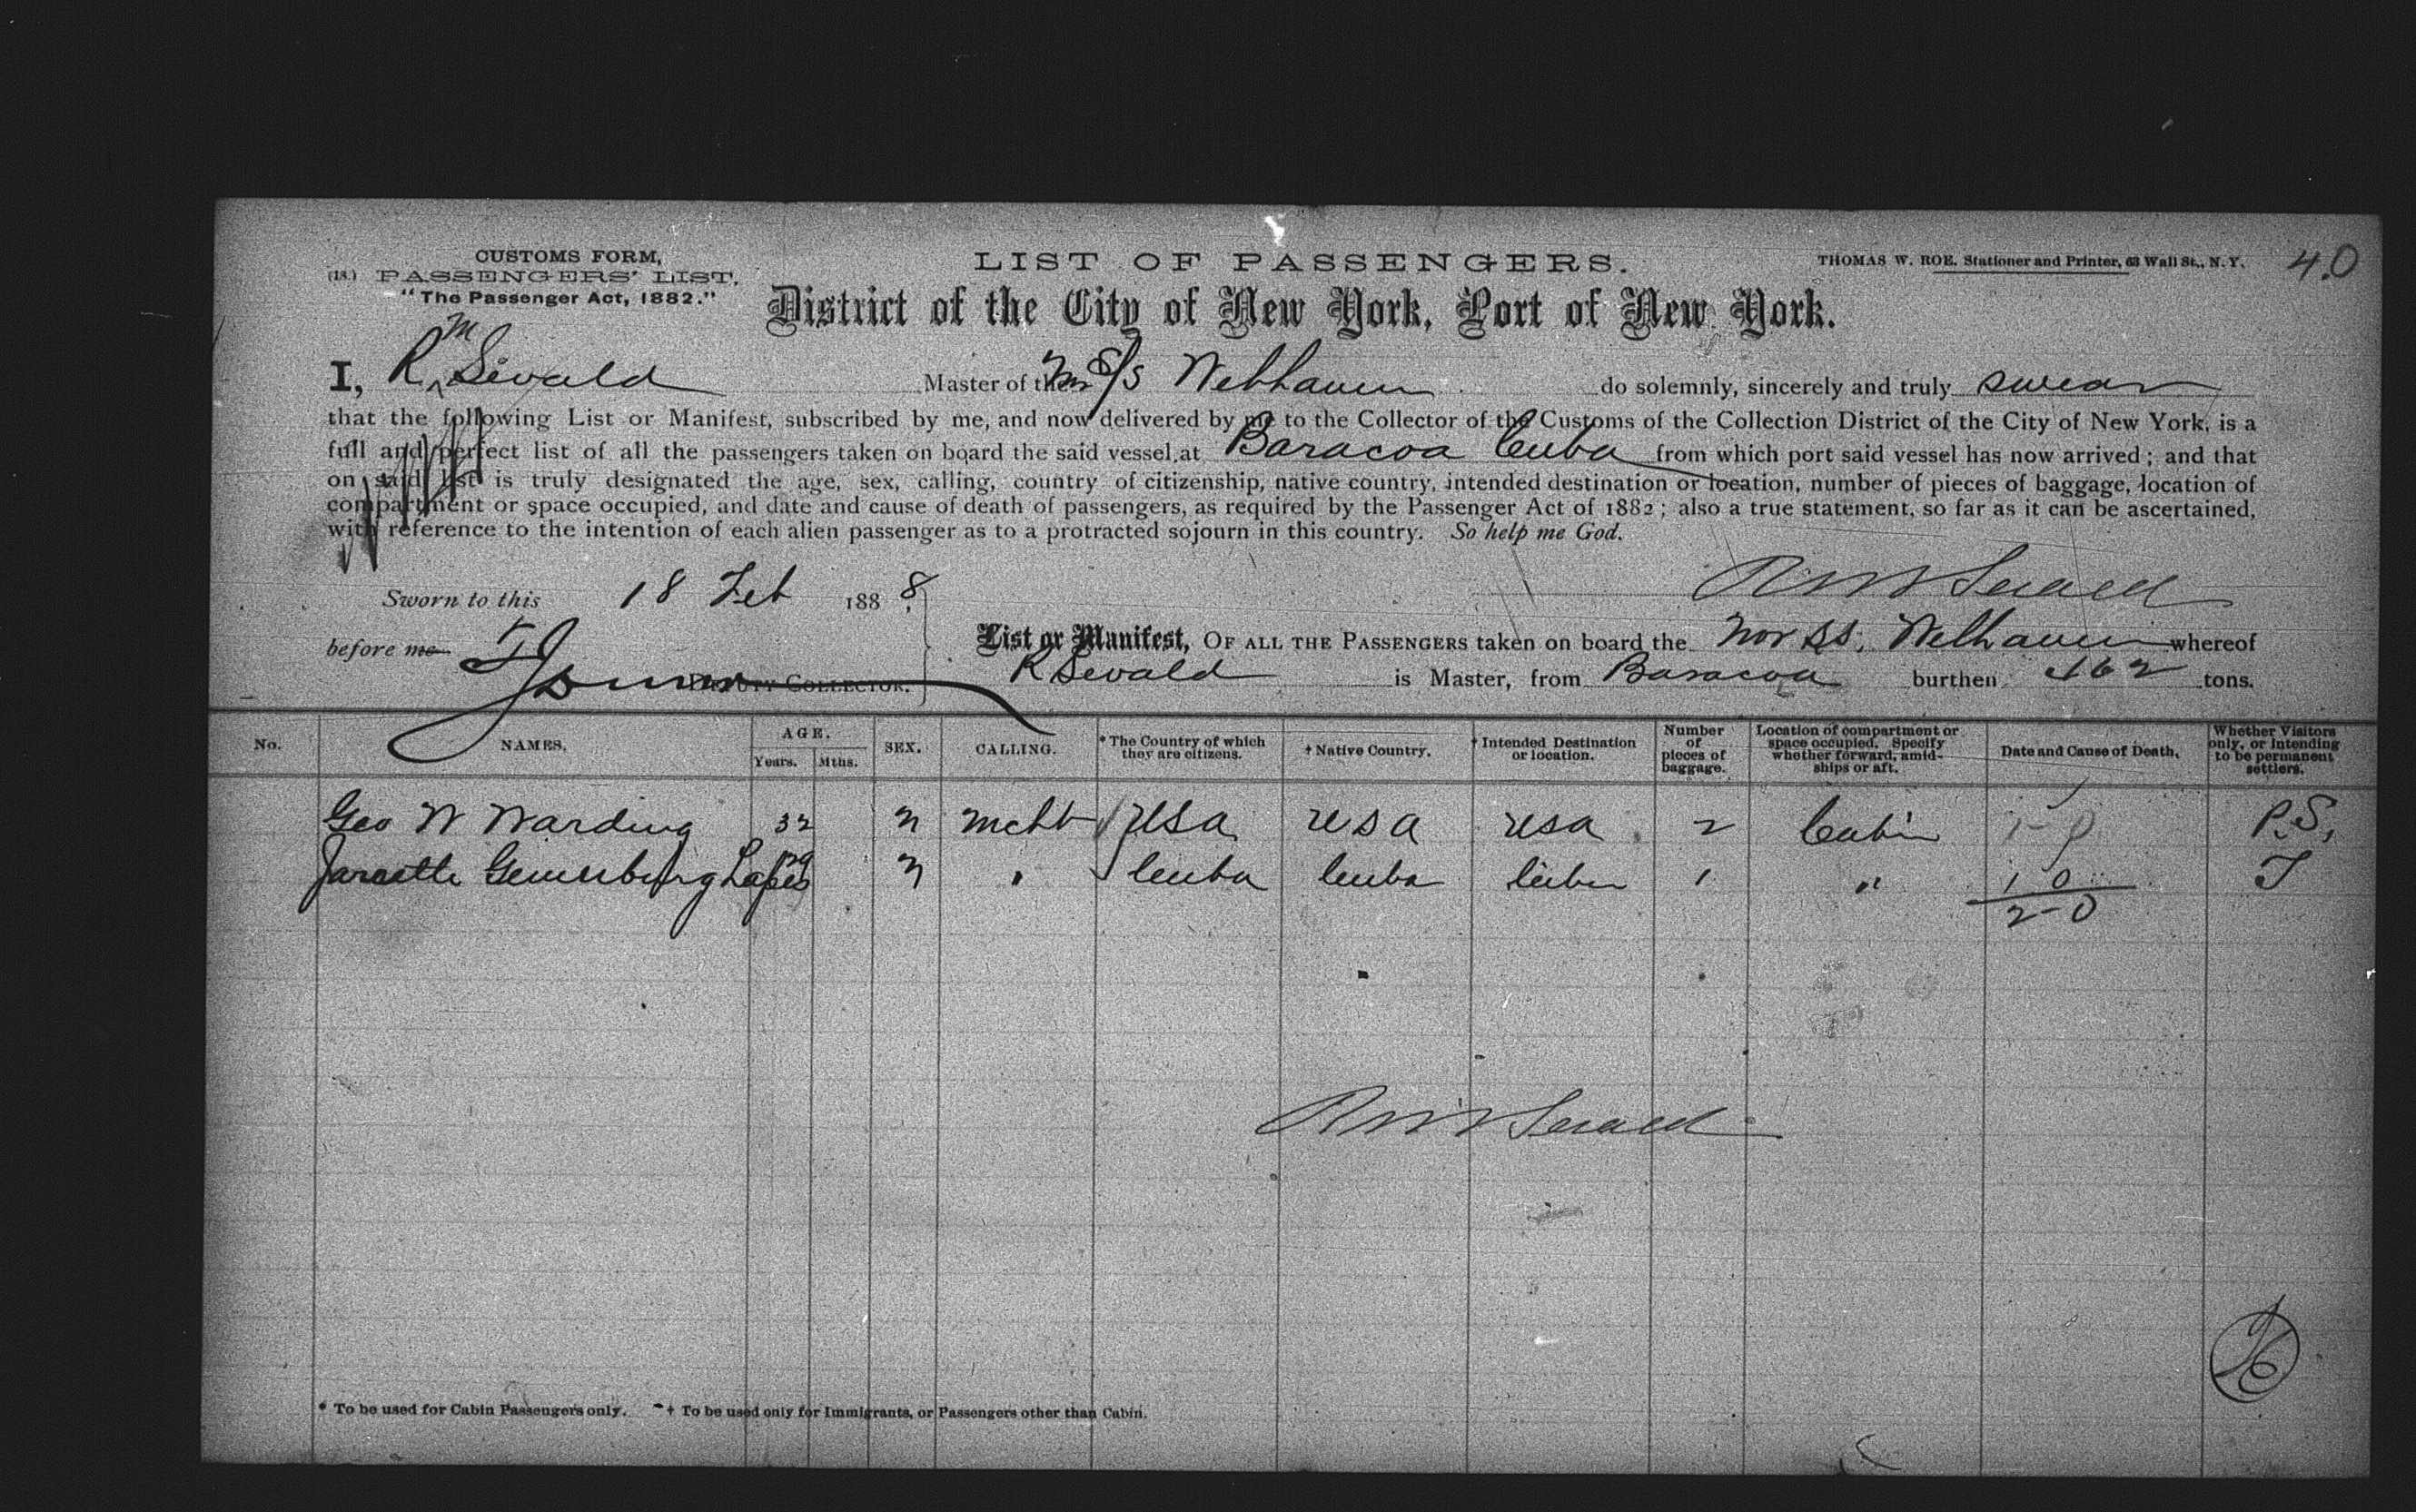 CUSTOMS FORM,
(18.) PASSENGERS' LIST.
"The Passenger Act, 1882."
LIST OF PASSENGERS.
THOMAS W. ROE. Stationer and Printer, 63 Wall St., N. Y.
40
District of the City of New York, Port of New York.
I, R M Sevald Master of the S/S Welhaven do solemnly, sincerely and truly swear
that the following List or Manifest, subscribed by me, and now delivered by me to the Collector of the Customs of the Collection District of the City of New York, is a
full and perfect list of all the passengers taken on board the said vessel at Baracoa Cuba from which port said vessel has now arrived; and that
on said list is truly designated the age, sex, calling, country of citizenship, native country, intended destination or location, number of pieces of baggage, location of
compartment or space occupied, and date and cause of death of passengers, as required by the Passenger Act of 1882; also a true statement, so far as it can be ascertained,
with reference to the intention of each alien passenger as to a protracted sojourn in this country. So help me God.
Sworn to this 18 Feb 1888
R M Sevald
before me
DEPUTY COLLECTOR.
List or Manifest, OF ALL THE PASSENGERS taken on board the Nor SS. Welhaven whereof
R Sevald is Master, from Baracoa burthen 462 tons.
No. NAMES. AGE. Years. Mths. SEX. CALLING. * The Country of which they are citizens. † Native Country. † Intended Destination or location. Number of pieces of baggage. Location of compartment or space occupied. Specify whether forward, amidships or aft. Date and Cause of Death. Whether Visitors only, or intending to be permanent settlers.
Geo W Warding 32 M Mcht USA USA USA 2 Cabin 1-0 P.S.
29 M " Cuba Cuba Cuba 1 " 1 0 T
2-0
R M Sevald
* To be used for Cabin Passengers only. † To be used only for Immigrants, or Passengers other than Cabin.